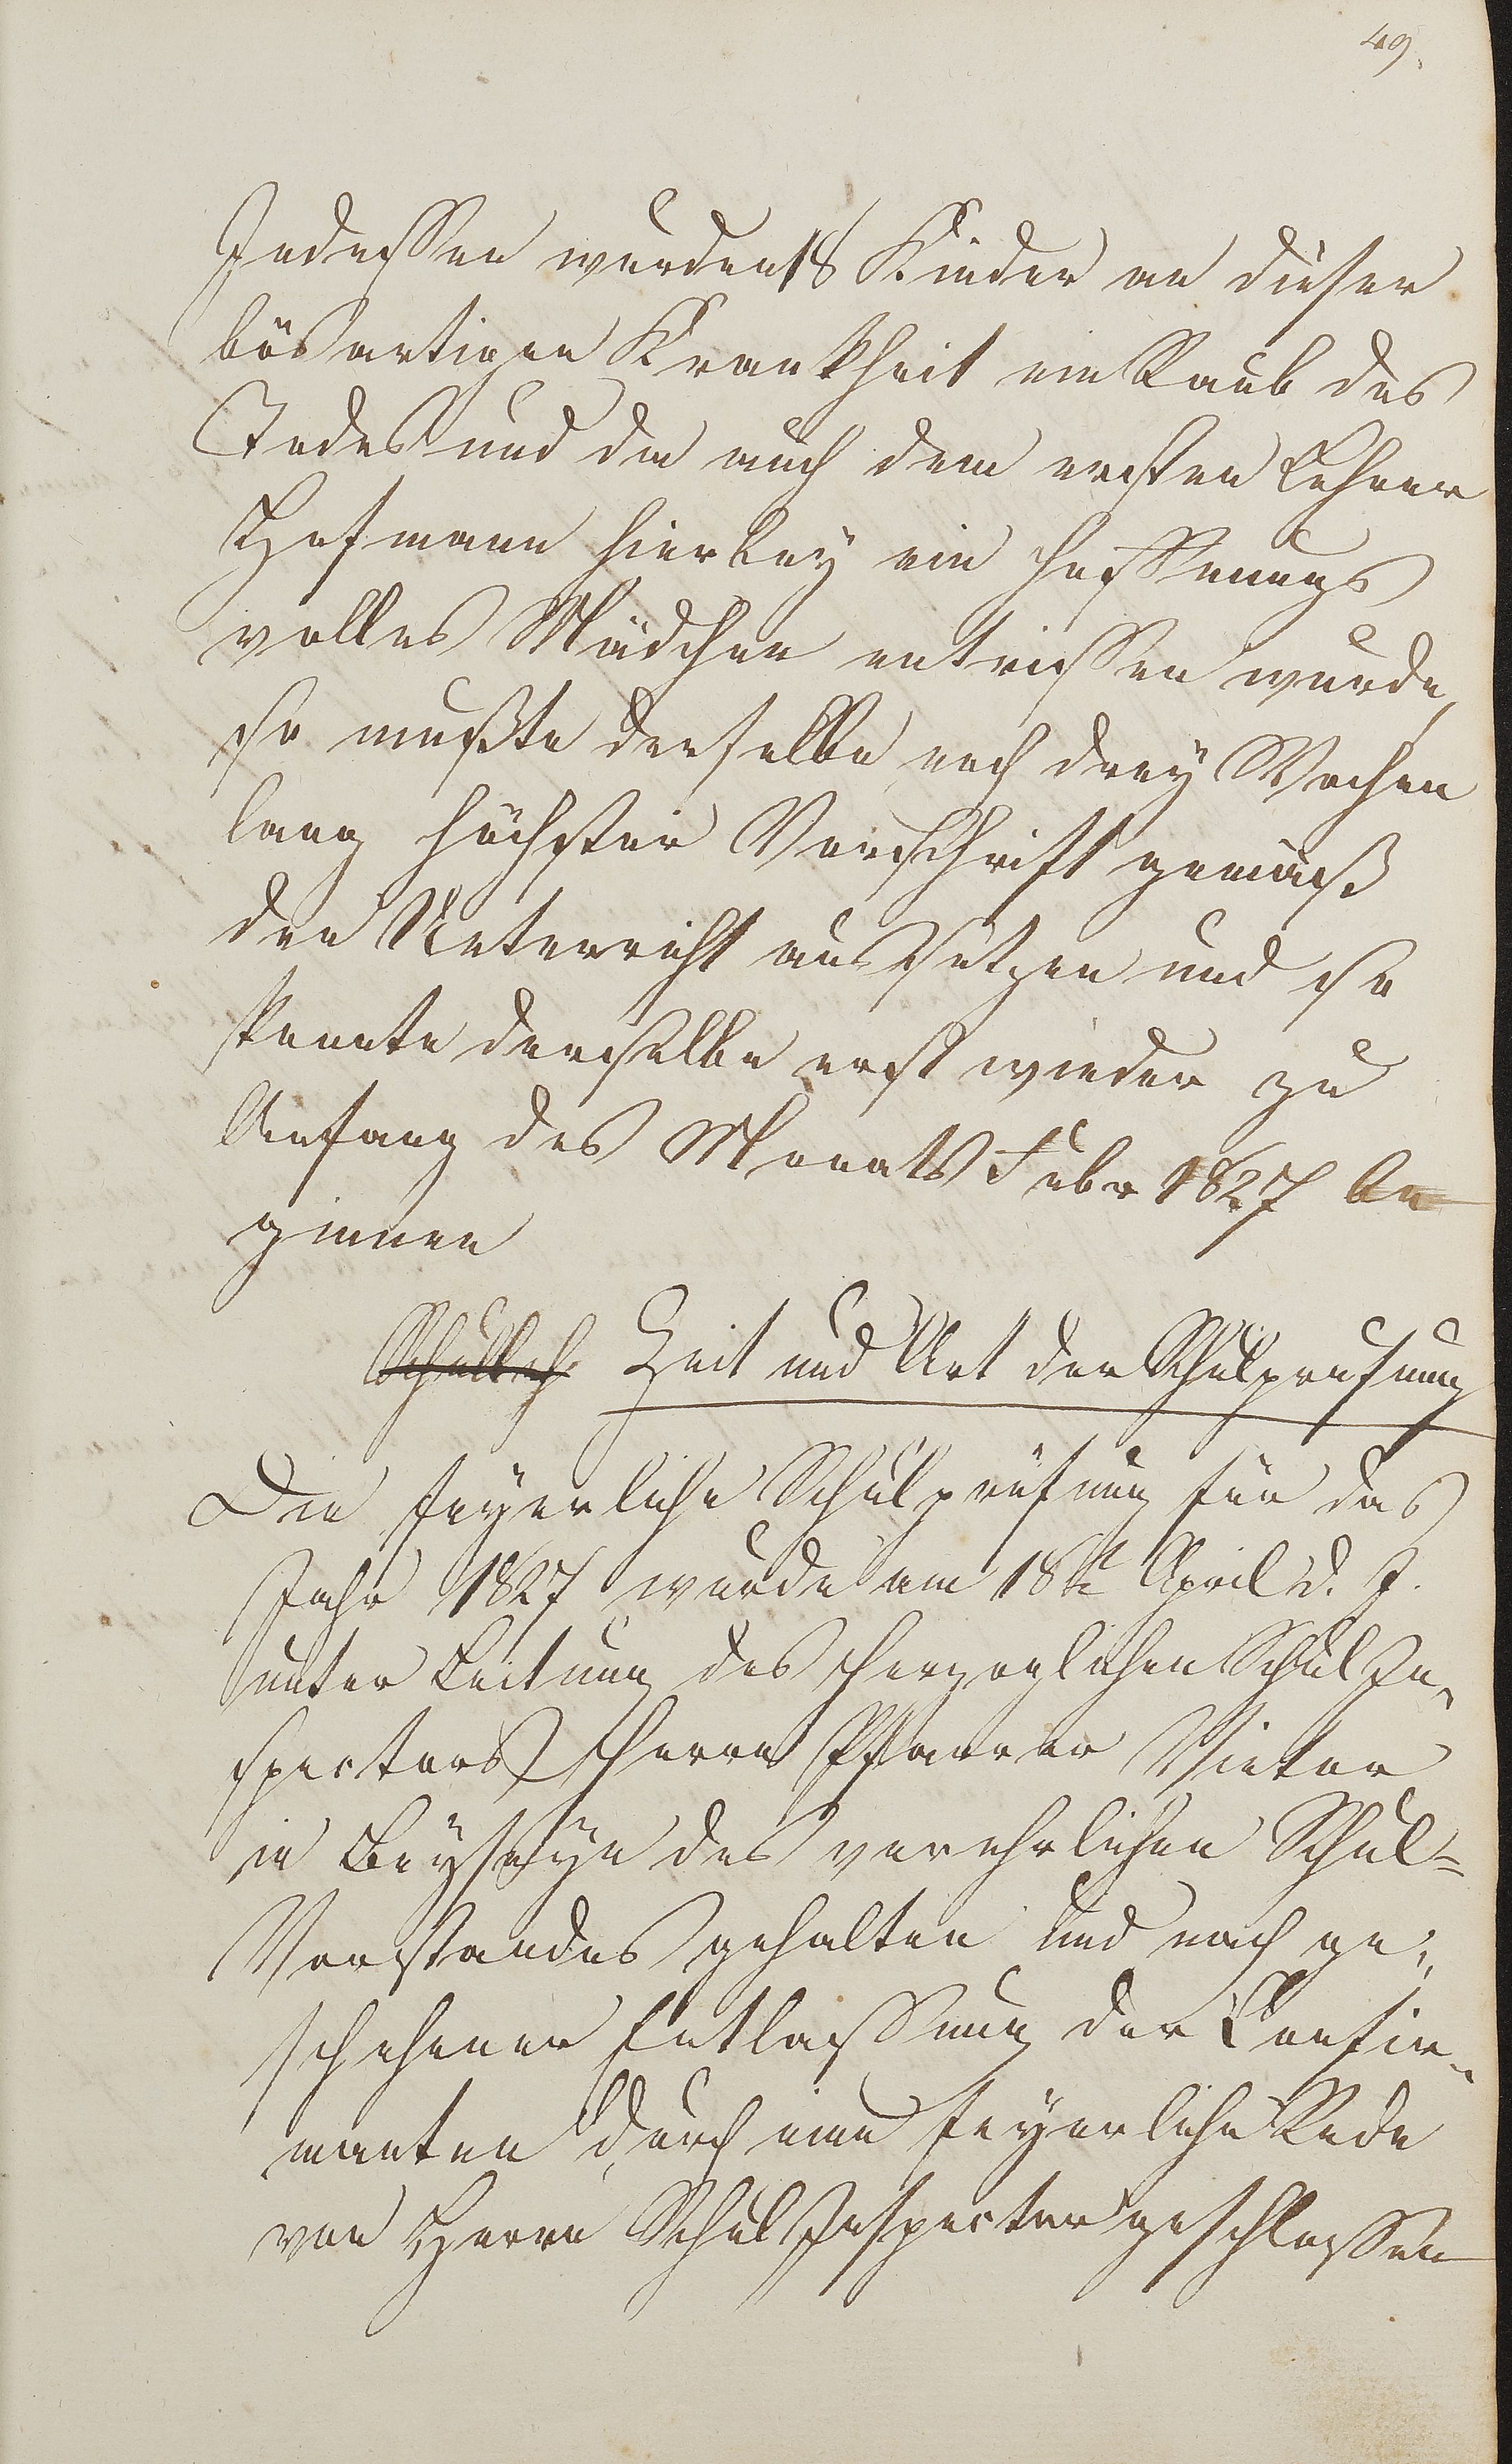 49.
Indessen wurden 18 Kinder an dieser
bösartigen Krankheit ein Raub des
Todes und da auch dem ersten Lehrer
Hofmann hierbey ein hoffnungs
volles Mädchen entrissen wurde,
so mußte derselbe noch drey Wochen
lang höchster Vorschrift gemäß
den Unterricht aussetzen und so
konnte derselbe erst wieder zu
Anfang des Monats Febr 1827 be
ginnen
Schulleh Zeit und Art der Schulprüfung
Die feyerliche Schulprüfung für das
Jahr 1827 wurde am 18t April d. J.
unter Leitung des Herzoglichen Schul In„
spectors Herrn Pfarrer Vietor
in Beyseyn des verehrlichen Schul=
Vorstandes gehalten und nach ge„
schehener Entlassung der Confir„
manten durch eine feyerliche Rede
von Herrn Schul Inspector geschlossen